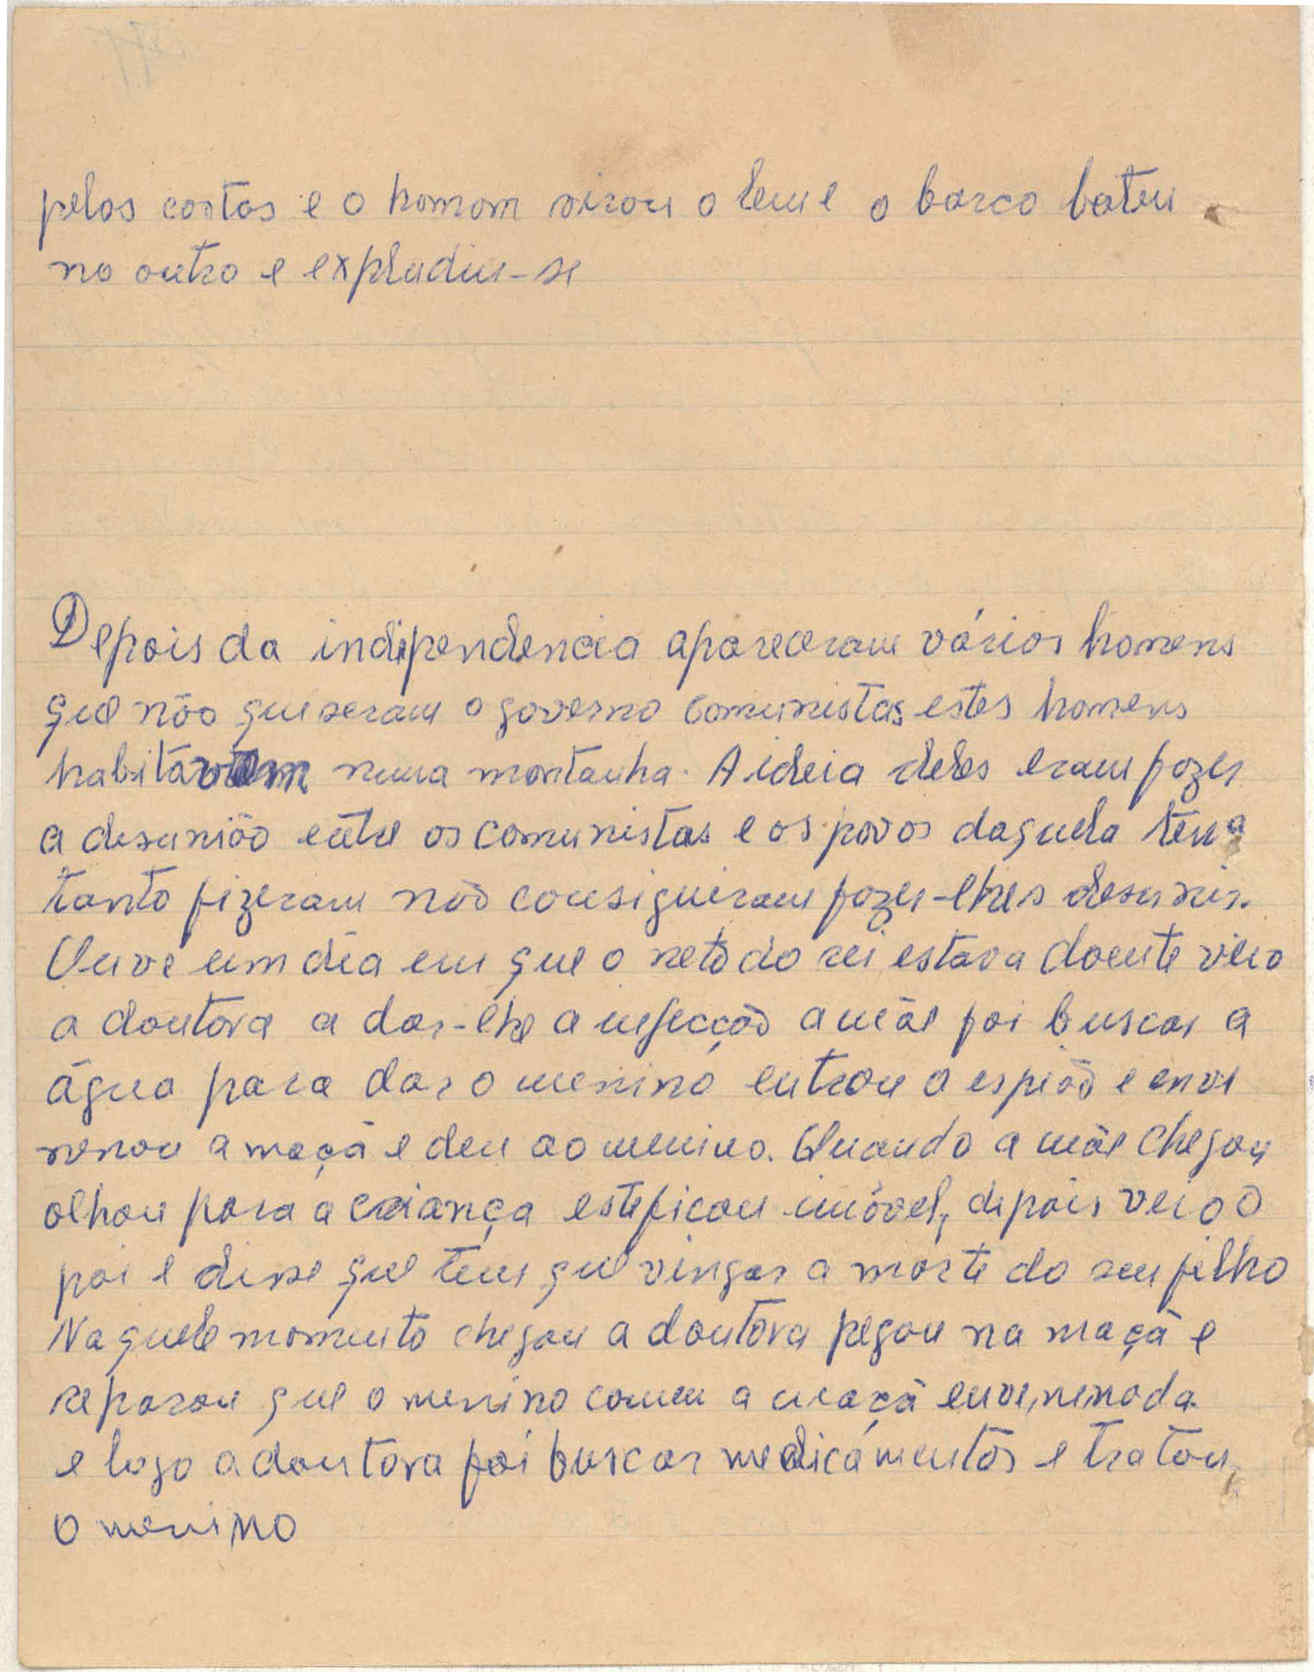 pelas costas e o homom virou o leme o barco bateu
no outro e expludiu-se
Depois da indipendencia apareceram vários homens
que não quiseram o governo comunistas estes homens
habitávam numa montanha. A ideia deles eram fazer
a desunião entre os comunistas e os povos daquela terra
tanto fizeram não consiguiram fazer-lhes desunir.
Ouve um dia em que o neto do rei estava doente veio
a doutora a dar-lhe a injecção a mãe foi buscar a
água para dar o menino entrou o espião e enve
nenou a maçã e deu ao menino. Quando a mãe chegou
olhou para a criança este ficou imóvel, depois veio o
pai e disse que tem que vingar a morte do seu filho
Naquele momento chegou a doutora pegou na maçã e
reparou que o menino comeu a maçã envenenada.
e logo a doutora foi buscar medicámentos e tratou
o menino